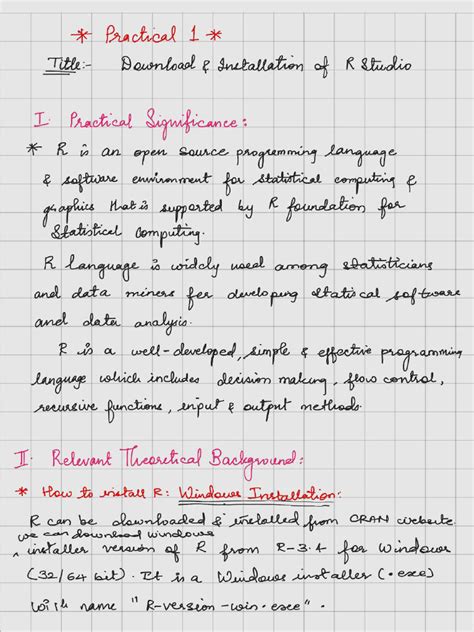 * Practical 1 *
Title:- Download & Installation of R Studio
I. Practical Significance:
* R is an open source programming language
& software environment for statistical computing &
graphics that is supported by R foundation for
Statistical computing.
R language is widely used among statisticians
and data miners for developing statical software
and data analysis.
R is a well-developed, simple & effective programming
language which includes decision making, flow control,
recursive functions, input & output methods.
II. Relevant Theoretical Background:
* How to install R: Windows Installation:
R can be downloaded & installed from CRAN website
we can download windows
installer version of R from R-3.4 for Windows
(32/64 bit). It is a Windows installer (.exe)
With name "R-version-win.exee".